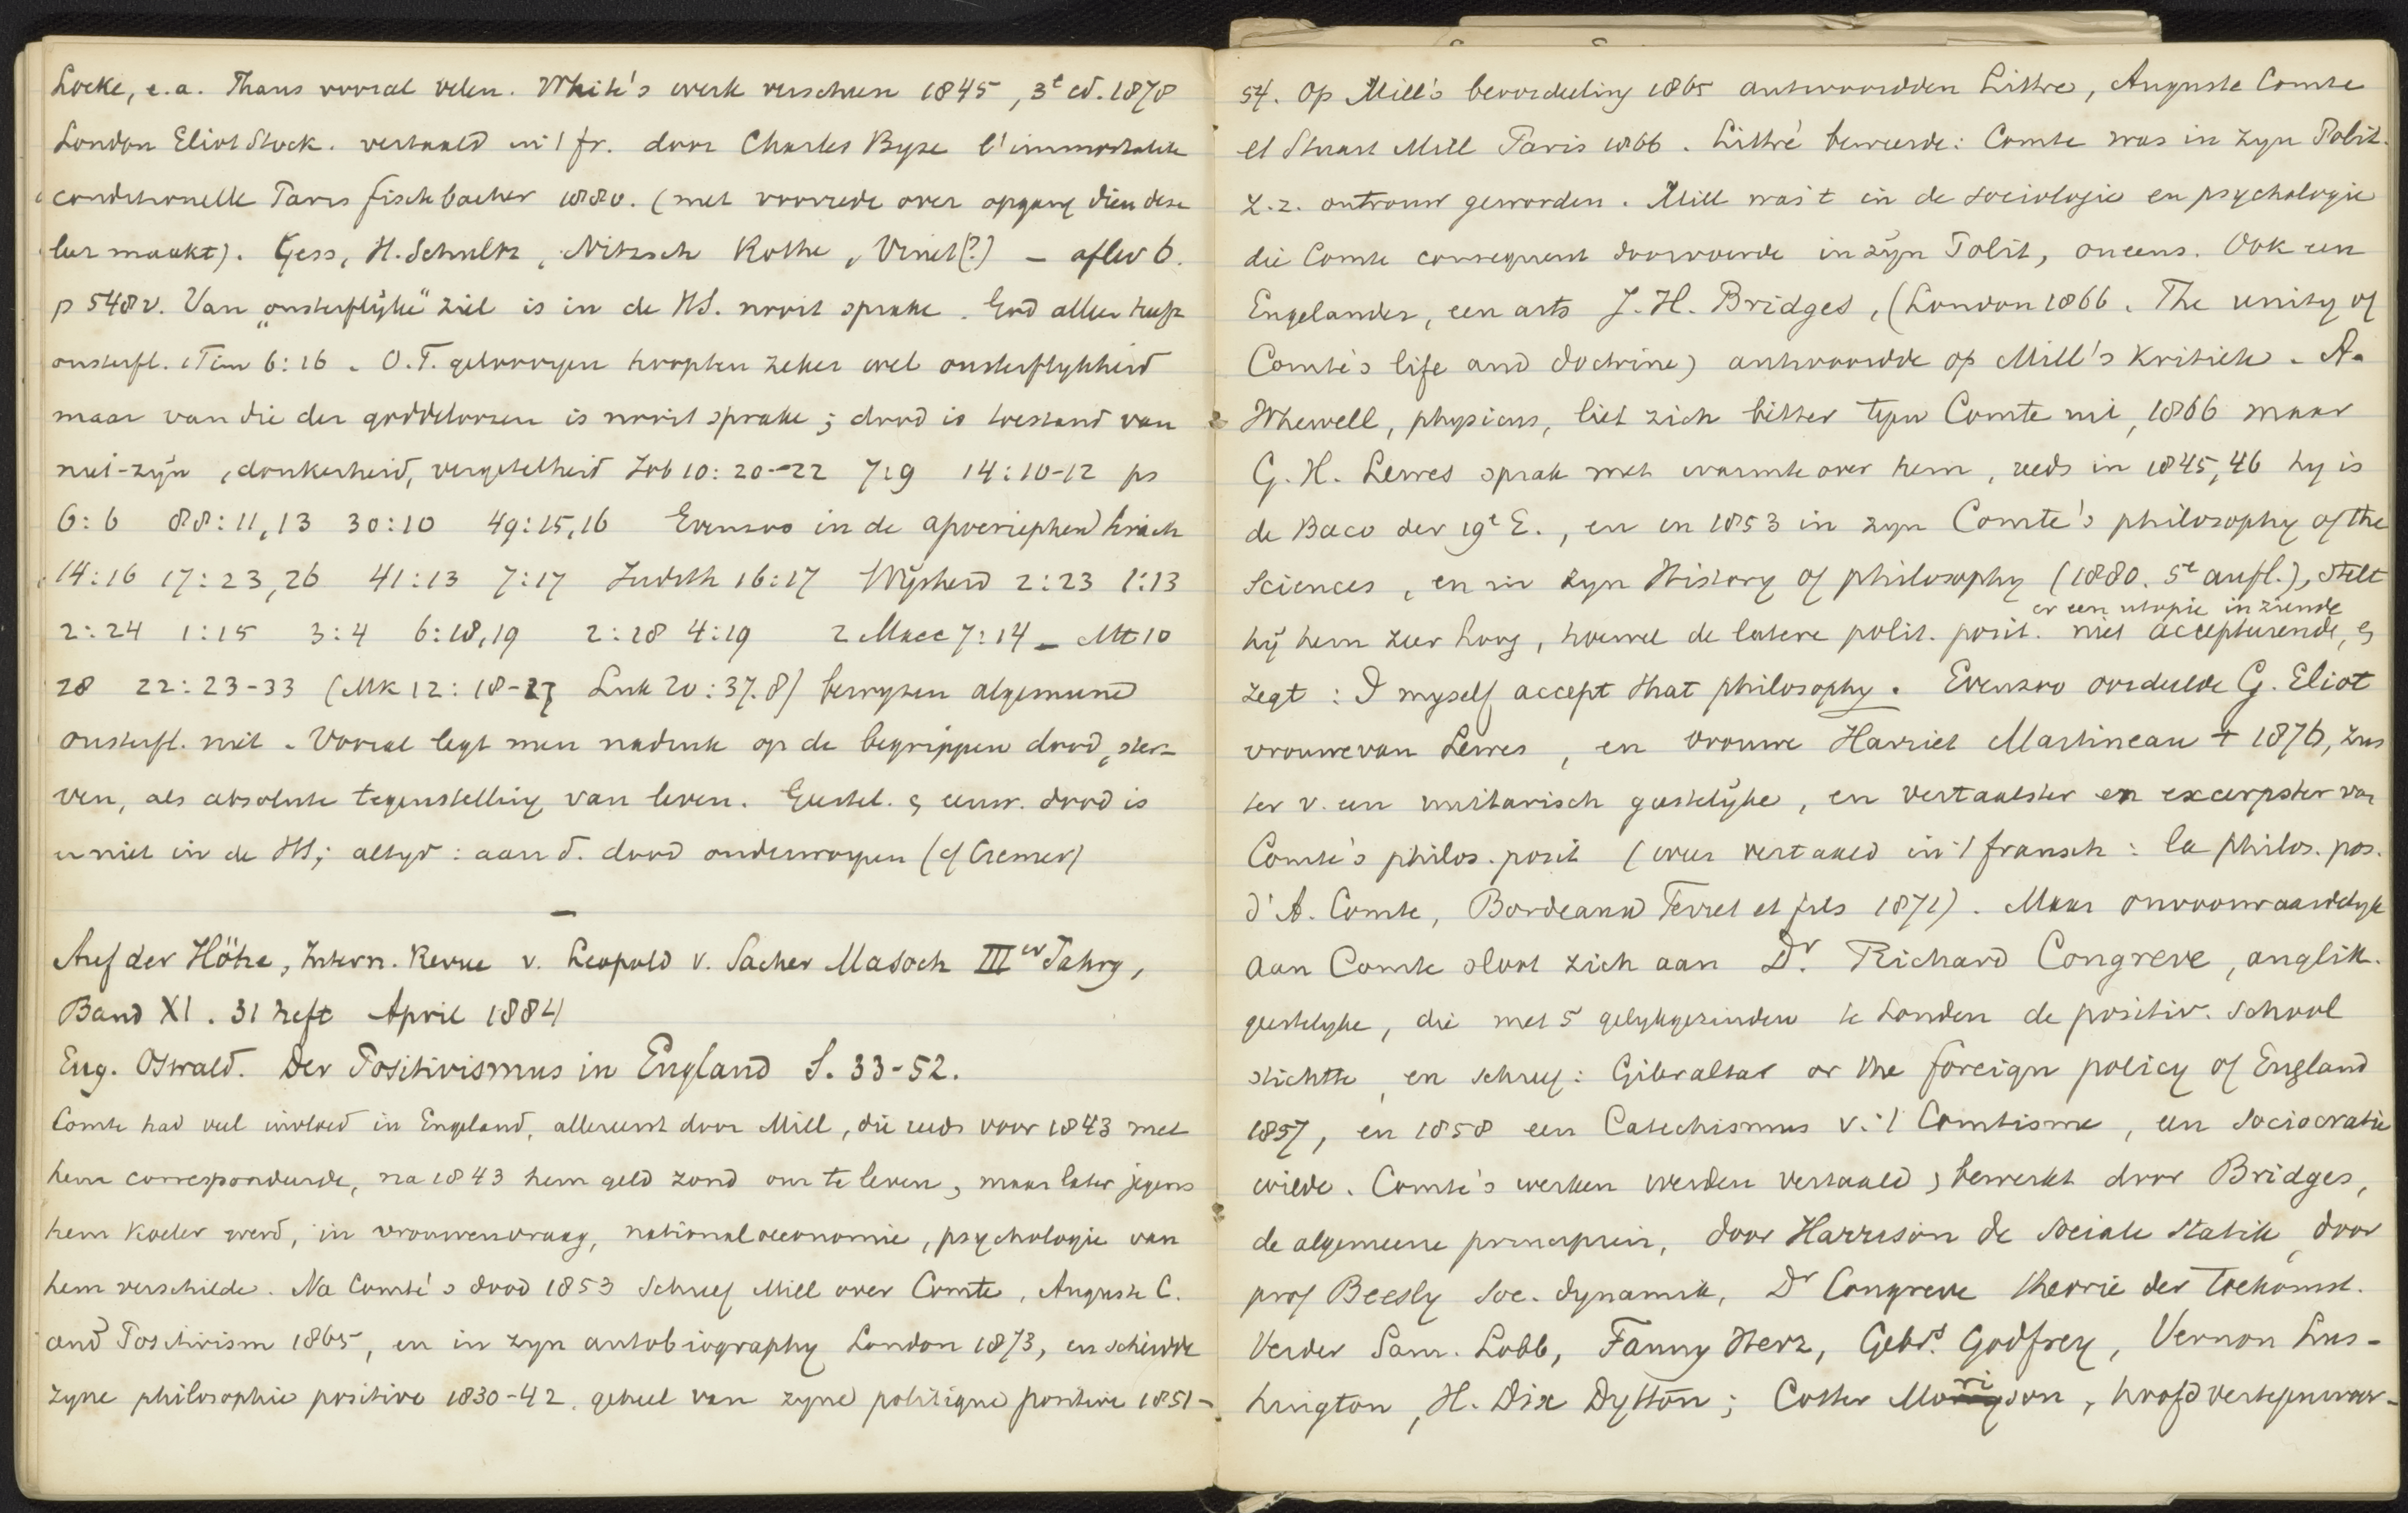 Locke, e.a. Thans vooral velen. White's werk verschenen 1845, 3e ed. 1878
London Eliot Stock. vertaald in 't fr. door Charles Byse l'immortalité
conditionnelle Paris fischbacher 1880. (met voorrede over opgang dien deze
leer maakt). Gess, H. Schultz, Nitzsch Rothe, Vinet(?) – aflev 6.
p 548v. Van „onsterflijke" ziel is in de HS. nooit sprake. God alleen heeft
onsterfl. 1 Tim 6:16. O.T. geloovigen hoopten zeker wel onsterflykheid
maar van die der goddeloozen is nooit sprake; dood is toestand van
niet-zijn, donkerheid, vergetelheid Job 10:20-22 7:9 14:10-12 ps
6:6 88:11,13 30:10 49:15,16 Evenzoo in de apocriephen Sirach
14:16 17:23,26 41:13 7:17 Judith 16:17 Wijsheid 2:23 1:13
2:24 1:15 3:4 6:18,19 2:18 4:19 2 Macc 7:14 – Mt 10
28 22:23-33 (Mk 12:18-27 Luk 20:37.8) bewyzen algemeene
onsterfl. niet. Vooral legt men nadruk op de begrippen dood, ster-
ven, als absolute tegenstelling van leven. Geestel. & eeuw. dood is
er niet in de HS; altyd: aan d. dood onderworpen (cf Cremer)
–
Auf der Höhe, Intern. Revue v. Leopold v. Sacher Masoch IIIer Jahrg,
Band XI. 31 heft April 1884
Eug. Oswald. Der Positivismus in England S. 33-52.
Comte had veel invloed in Engeland, allereerst door Mill, die reeds voor 1843 met
hem correspondeerde, na 1843 hem geld zond om te leven, maar later jegens
hem koeler werd, in vrouwenvraag, nationaloeconomie, psychologie van
hem verschilde. Na Comte's dood 1853 schreef Mill over Comte, Auguste C.
and Positivism 1865, en in zyn autobiography London 1873, en scheidde
zyne philosophie positive 1830-42. geheel van zyne politique positive 1851-
54. Op Mill's beoordeeling 1865 antwoordden Littré, Auguste Comte
et Stuart Mill Paris 1866. Littré beweerde: Comte was in zyn Polit.
z.z. ontrouw geworden. Mill was 't in de sociologie en psychologie
die Comte consequent doorvoerde in zijn Polit, oneens. Ook een
Engelander, een arts J.H. Bridges, (London 1866. The unity of
Comte's life and doctrine) antwoordde op Mill's kritiek. A.
Whewell, physicus, liet zich bitter tegen Comte uit, 1866 maar
G.H. Lewes sprak met warmte over hem, reeds in 1845,46 hy is
de Baco der 19e E., en in 1853 in zyn Comte's philosophy of the
Sciences, en in zyn History of philosophy (1880. 5e aufl.), stelt
er een utopie in ziende
hij hem zeer hoog, hoewel de latere polit. posit. niet accepteerende, &
zegt: I myself accept that philosophy. Evenzoo oordeelde G. Eliot
vrouwe van Lewes, en vrouwe Harriet Martineau † 1876, zus
ter v. een unitarisch geestelijke, en vertaalster en excerpster van
Comte's philos. posit (weer vertaald in 't fransch: la philos. pos.
d'A. Comte, Bordeaux Ferret et fils 1871). Maar onvoorwaardelyk
aan Comte sloot zich aan Dr. Richard Congreve, anglik.
geestelyke, die met 5 gelykgezinden te Londen de positiv. School
stichtte, en schreef: Gibraltar or the foreign policy of England
1857, en 1858 een Catechismus v. 't Comtisme, een sociocratie
wilde. Comte's werken werden vertaald, bewerkt door Bridges,
de algemeene principien, door Harrison de sociale statik, door
prof Beesly soc. dynamik, Dr Congreve theorie der toekomst.
Verder Sam. Lobb, Fanny Herz, Gebrs. Godfrey, Vernon Lus-
hington, H. Dix Dytton; Cotter Morison, hoofdvertegenwoor-